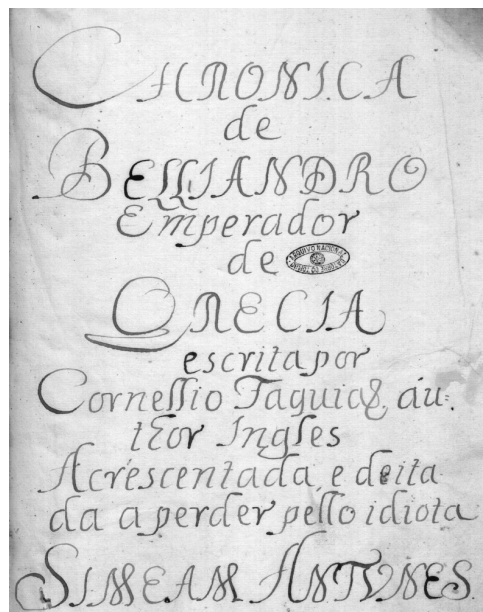 CHRONICA
de
BELLIANDRO
Emperador
de
GRECIA
escrita por
Cornellio Taguias, au:
thor Ingles
Acrescentada, e deita
da a perder pello idiota
SIMEAM ANTUNES.